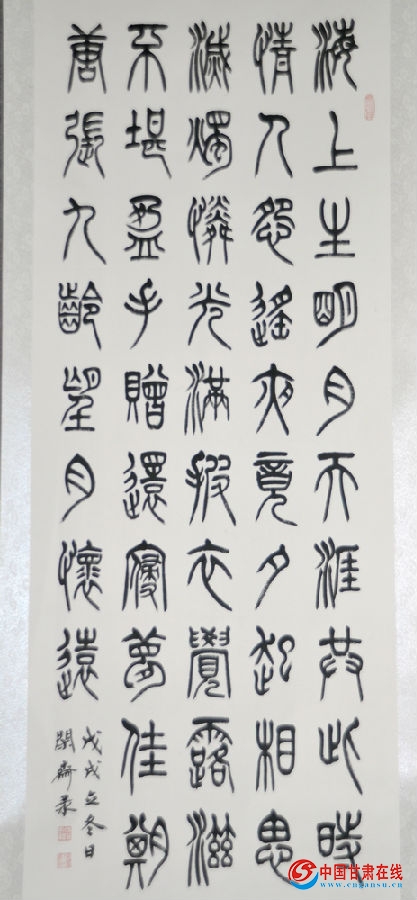 海上生明月天涯共此時
情人怨遙夜竟夕起相思
滅燭憐光滿披衣覺露滋
不堪盈手贈還寢夢佳期
唐張九齡望月懷遠
戊戌立冬日
中国甘肃在线
www.cngansu.cn